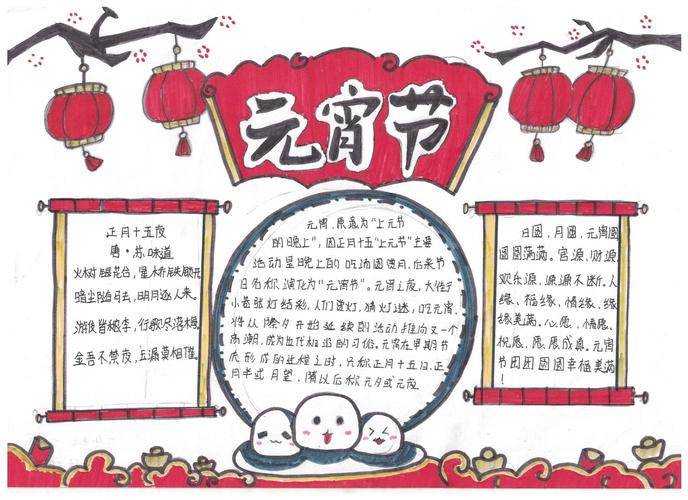 元宵节
正月十五夜
唐·苏味道
火树银花合，星桥铁锁开
暗尘随马去，明月逐人来。
游伎皆秾李，行歌尽落梅
金吾不禁夜，玉漏莫相催。
元宵，原意为“上元节
的晚上”，因正月十五“上元节”主要
活动是晚上的吃汤圆赏月，后来节
日名称演化为“元宵节”。元宵之夜，大街
小巷张灯结彩，人们赏灯，猜灯谜，吃元宵，
将从除夕开始延续的活动推向又一个
高潮，成为世代相沿的习俗。元宵在早期节
庆形成的过程之时，只称正月十五日、正
月半或月望，隋以后称元夕或元夜
日圆，月圆，元宵圆
圆圆满满。官源，财源
欢乐源，源源不断。人
缘，福缘，情缘，缘
缘美满。心愿，情愿，
祝愿，愿愿成真。元宵
节团团圆圆幸福美满
！